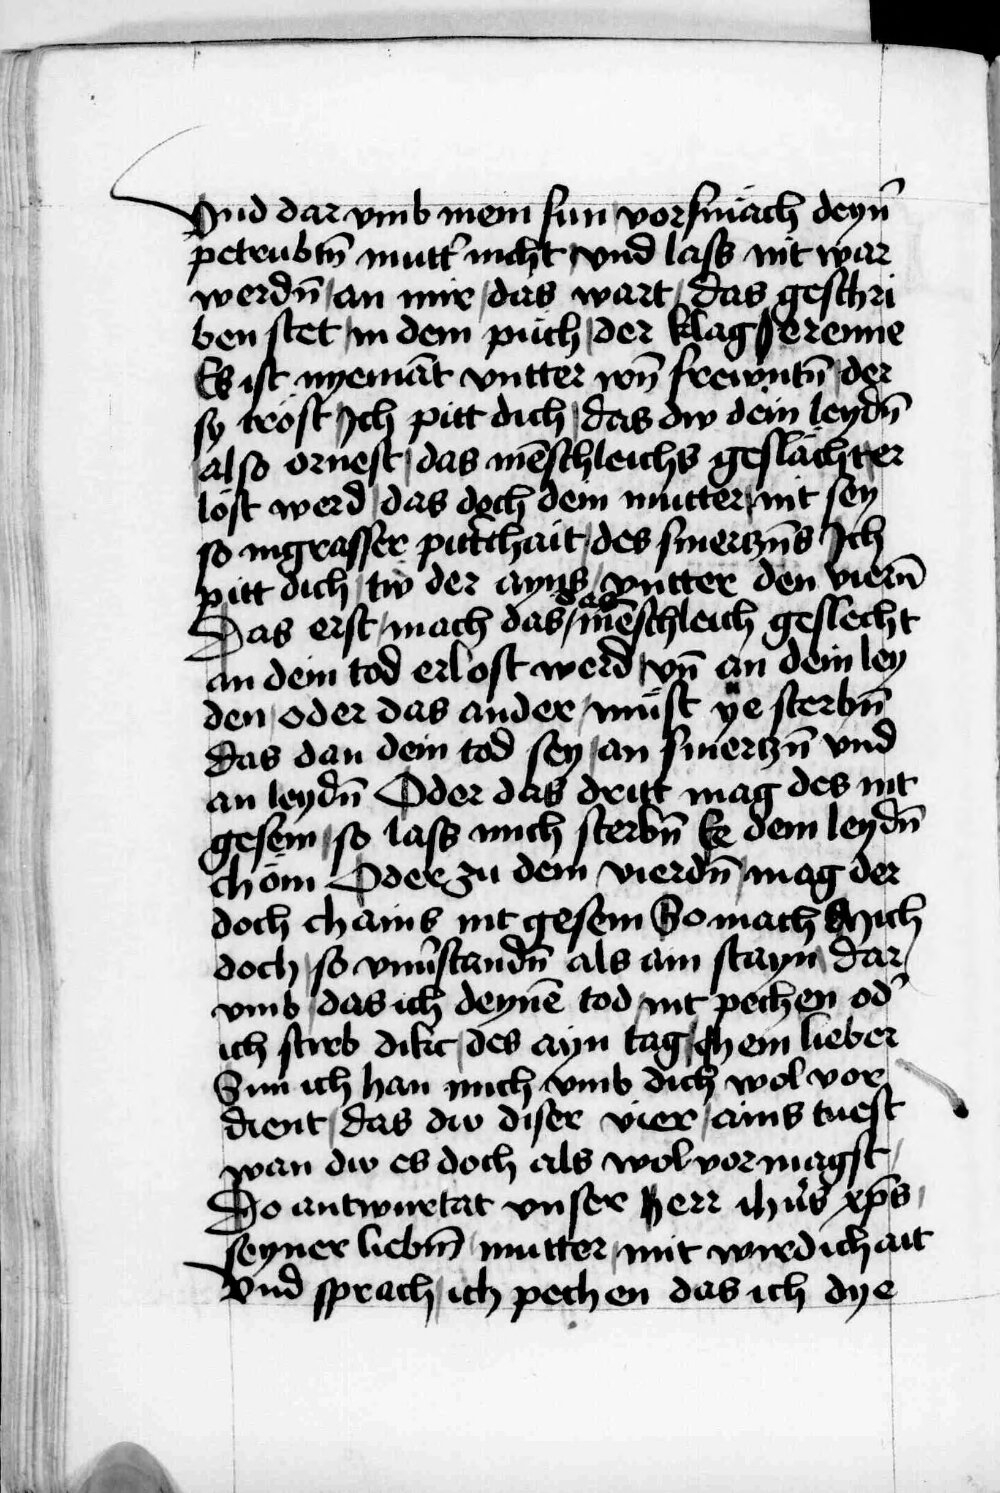 Vnd dar vmb mein sun vorsmäch deyn̄
petrubtn̄ mutt' nicht vnd lass nit war
werdn̄ an mir das wart das geschri
ben stet in dem püch der klag Jeremie
Es ist nyemāt vntter ירn̄ frewntn̄ der
sy tröst Ich pitt dich das dw dein leydn̄
also ornest das mēschleichs geslächt er
löst werd das doch dein mutter nit sey
so in grasser pitt'chait des smertzn̄s Ich
pitt dich tw der ayns vntter den viern̄
Das erst mach das das mēschleich geslecht
an dein tod erlost werd vn̄ an dein ley
den oder das ander müst ye sterbn̄
das dan dein tod sey an smertzn̄ vnd
an leydn̄ Oder das dritt mag des nit
gesein so lass mich sterbn̄ Ee dein leydn̄
chöm Oder zu dem vierdn̄ mag der
doch chains nit gesein So mach Mich
doch so vnu'standn̄ als ain stayn dar
vmb das ich deynē tod nit pechen od'
ich stirb dikt des ayn tag Mein lieber
Sun ich han mich vmb dich wol vor
dient das dw diser vier ains tuest
wan dw es doch als wol vormagst
Do antwurtat vnser herr ihūs xp̄s
seyner liebn̄ mutter mit wirdichait
Vnd sprach ich pechen das ich dye